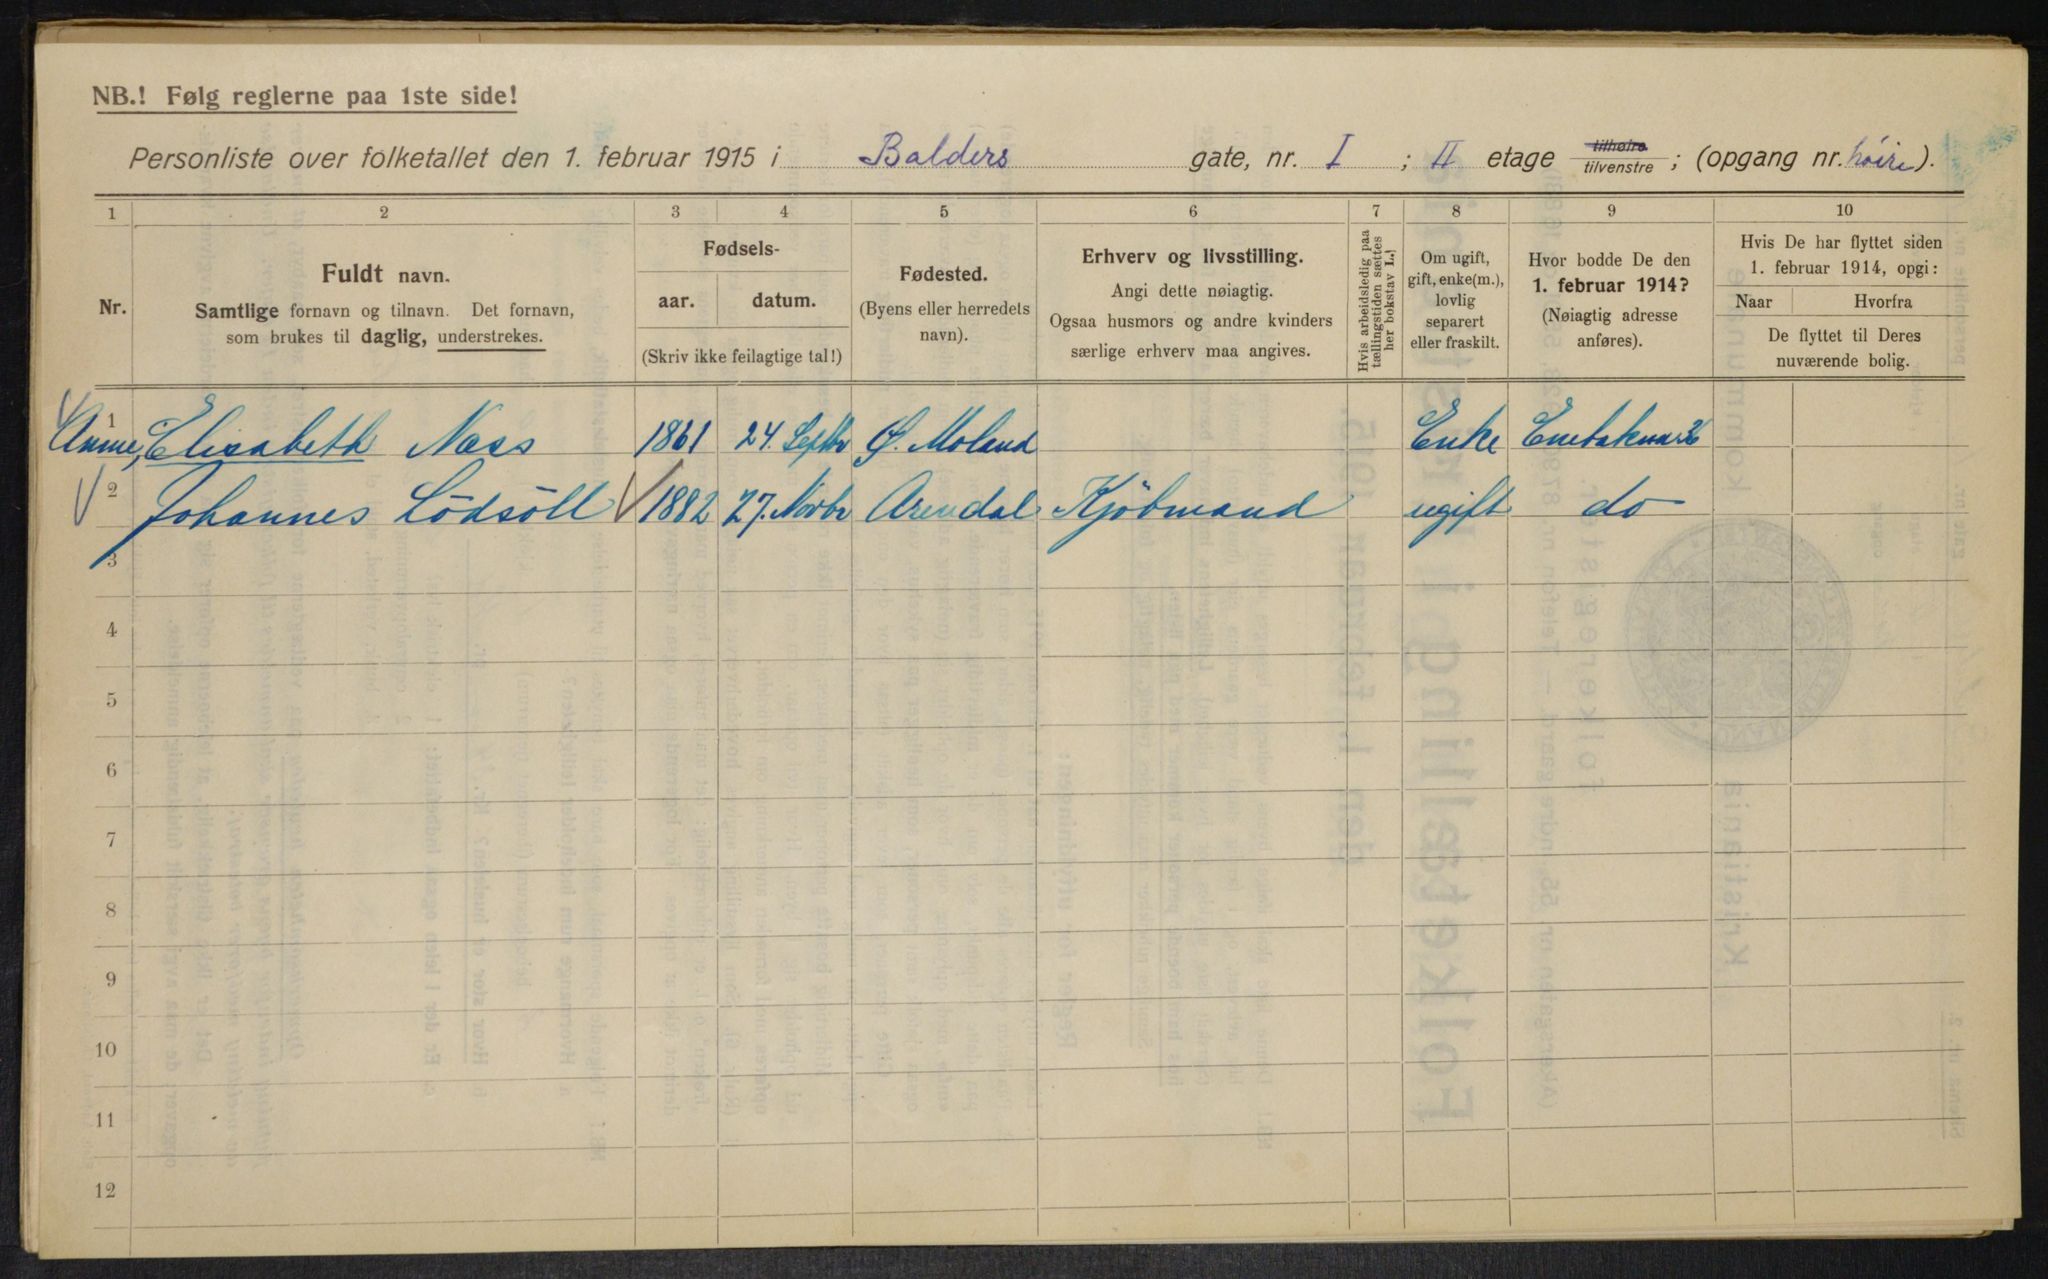 NB.! Følg reglerne paa 1ste side!
Personliste over folketallet den 1. februar 1915 i Balders gate, nr. I ; II etage tilhøire tilvenstre ; (opgang nr. høire).
1 2 3 4 5 6 7 8 9 10
Nr.
Fuldt navn.
Samtlige fornavn og tilnavn. Det fornavn,
som brukes til daglig, understrekes.
Fødsels-
aar. datum.
(Skriv ikke feilagtige tal!)
Fødested.
(Byens eller herredets
navn).
Erhverv og livsstilling.
Angi dette nøiagtig.
Ogsaa husmors og andre kvinders
særlige erhverv maa angives.
Hvis arbeidsledig paa
tællingstiden sættes
her bokstav L.)
Om ugift,
gift, enke(m.),
lovlig
separert
eller fraskilt.
Hvor bodde De den
1. februar 1914?
(Nøiagtig adresse
anføres).
Hvis De har flyttet siden
1. februar 1914, opgi:
Naar Hvorfra
De flyttet til Deres
nuværende bolig.
1 Anne, Elisabeth Næss 1861 24. Septbr Ø. Moland Enke Enebakvn 36
2 Johannes Lödsöll 1882 27. Novbr Arendal Kjöbmand ugift do
3
4
5
6
7
8
9
10
11
12